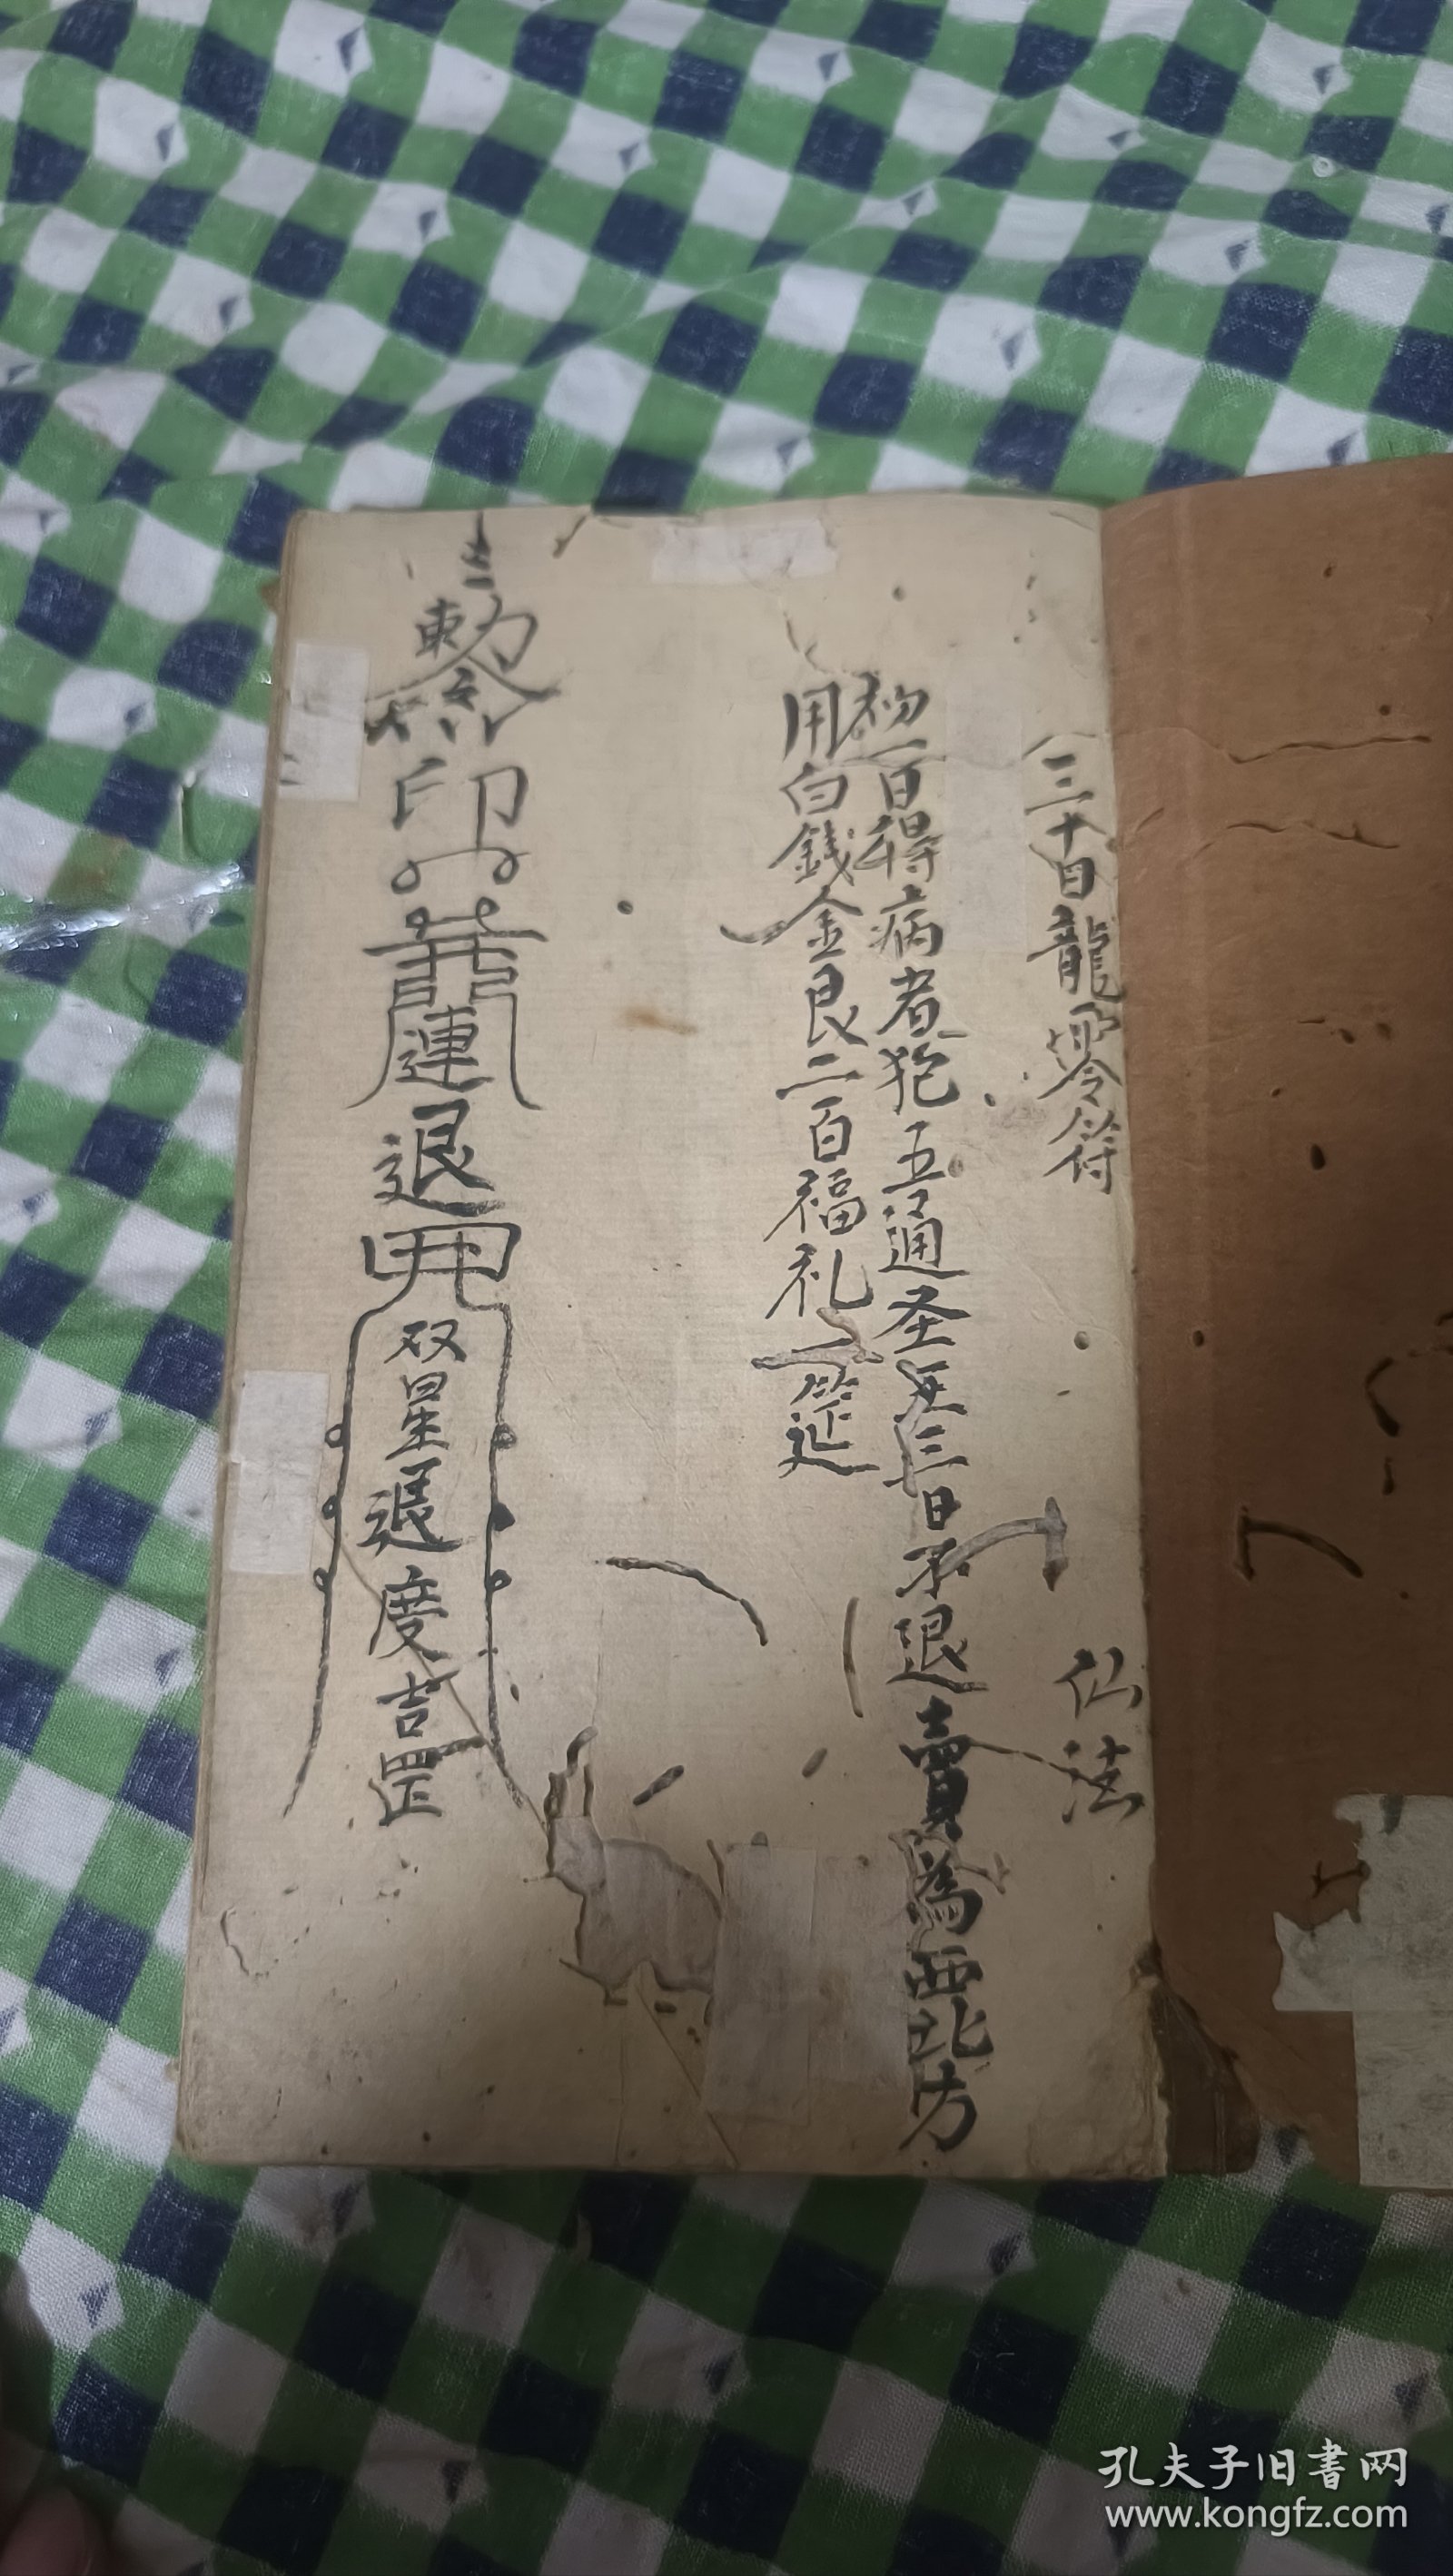 三十日龍零符 仙法
初一日得病者犯五通圣至三日不退賣為西北方
用白錢金艮二百福礼一筵
敕 印 連退 双星退度吉罡
孔夫子旧書网
www.kongfz.com